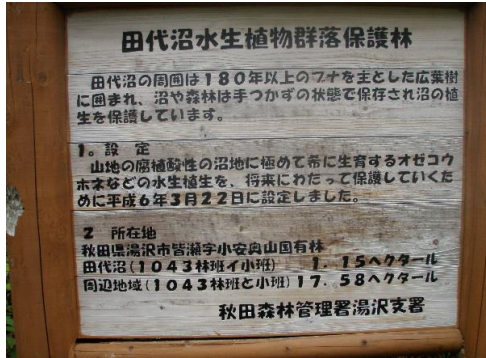 田代沼水生植物群落保護林
田代沼の周囲は180年以上のブナを主とした広葉樹
に囲まれ、沼や森林は手つかずの状態で保存され沼の植
生を保護しています。
1。設　定
山地の腐植酸性の沼地に極めて希に生育するオゼコウ
ホネなどの水生植生を、将来にわたって保護していくた
めに平成6年3月22日に設定しました。
2　所在地
秋田県湯沢市皆瀬字小安奥山国有林
田代沼(1043林班イ小班)　1．15ヘクタール
周辺地域(1043林班と小班)17．58ヘクタール
秋田森林管理署湯沢支署